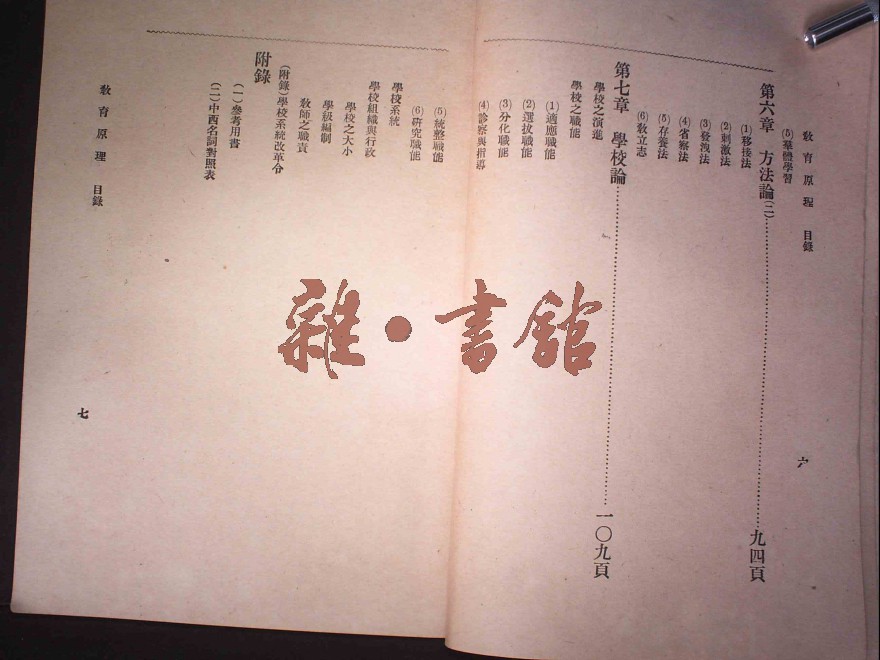 教育原理 目錄
六
(5)羣體學習
第六章 方法論(二)……九四頁
(1)移接法
(2)刺激法
(3)發洩法
(4)省察法
(5)存養法
(6)敎立志
第七章 學校論……一〇九頁
學校之演進
學校之職能
(1)適應職能
(2)選拔職能
(3)分化職能
(4)診察與指導
(5)統整職能
(6)研究職能
學校系統
學校組織與行政
學校之大小
學級編制
敎師之職責
(附錄)學校系統改革令
附錄
(一)參考用書
(二)中西名詞對照表
敎育原理 目錄
七
雜·書館